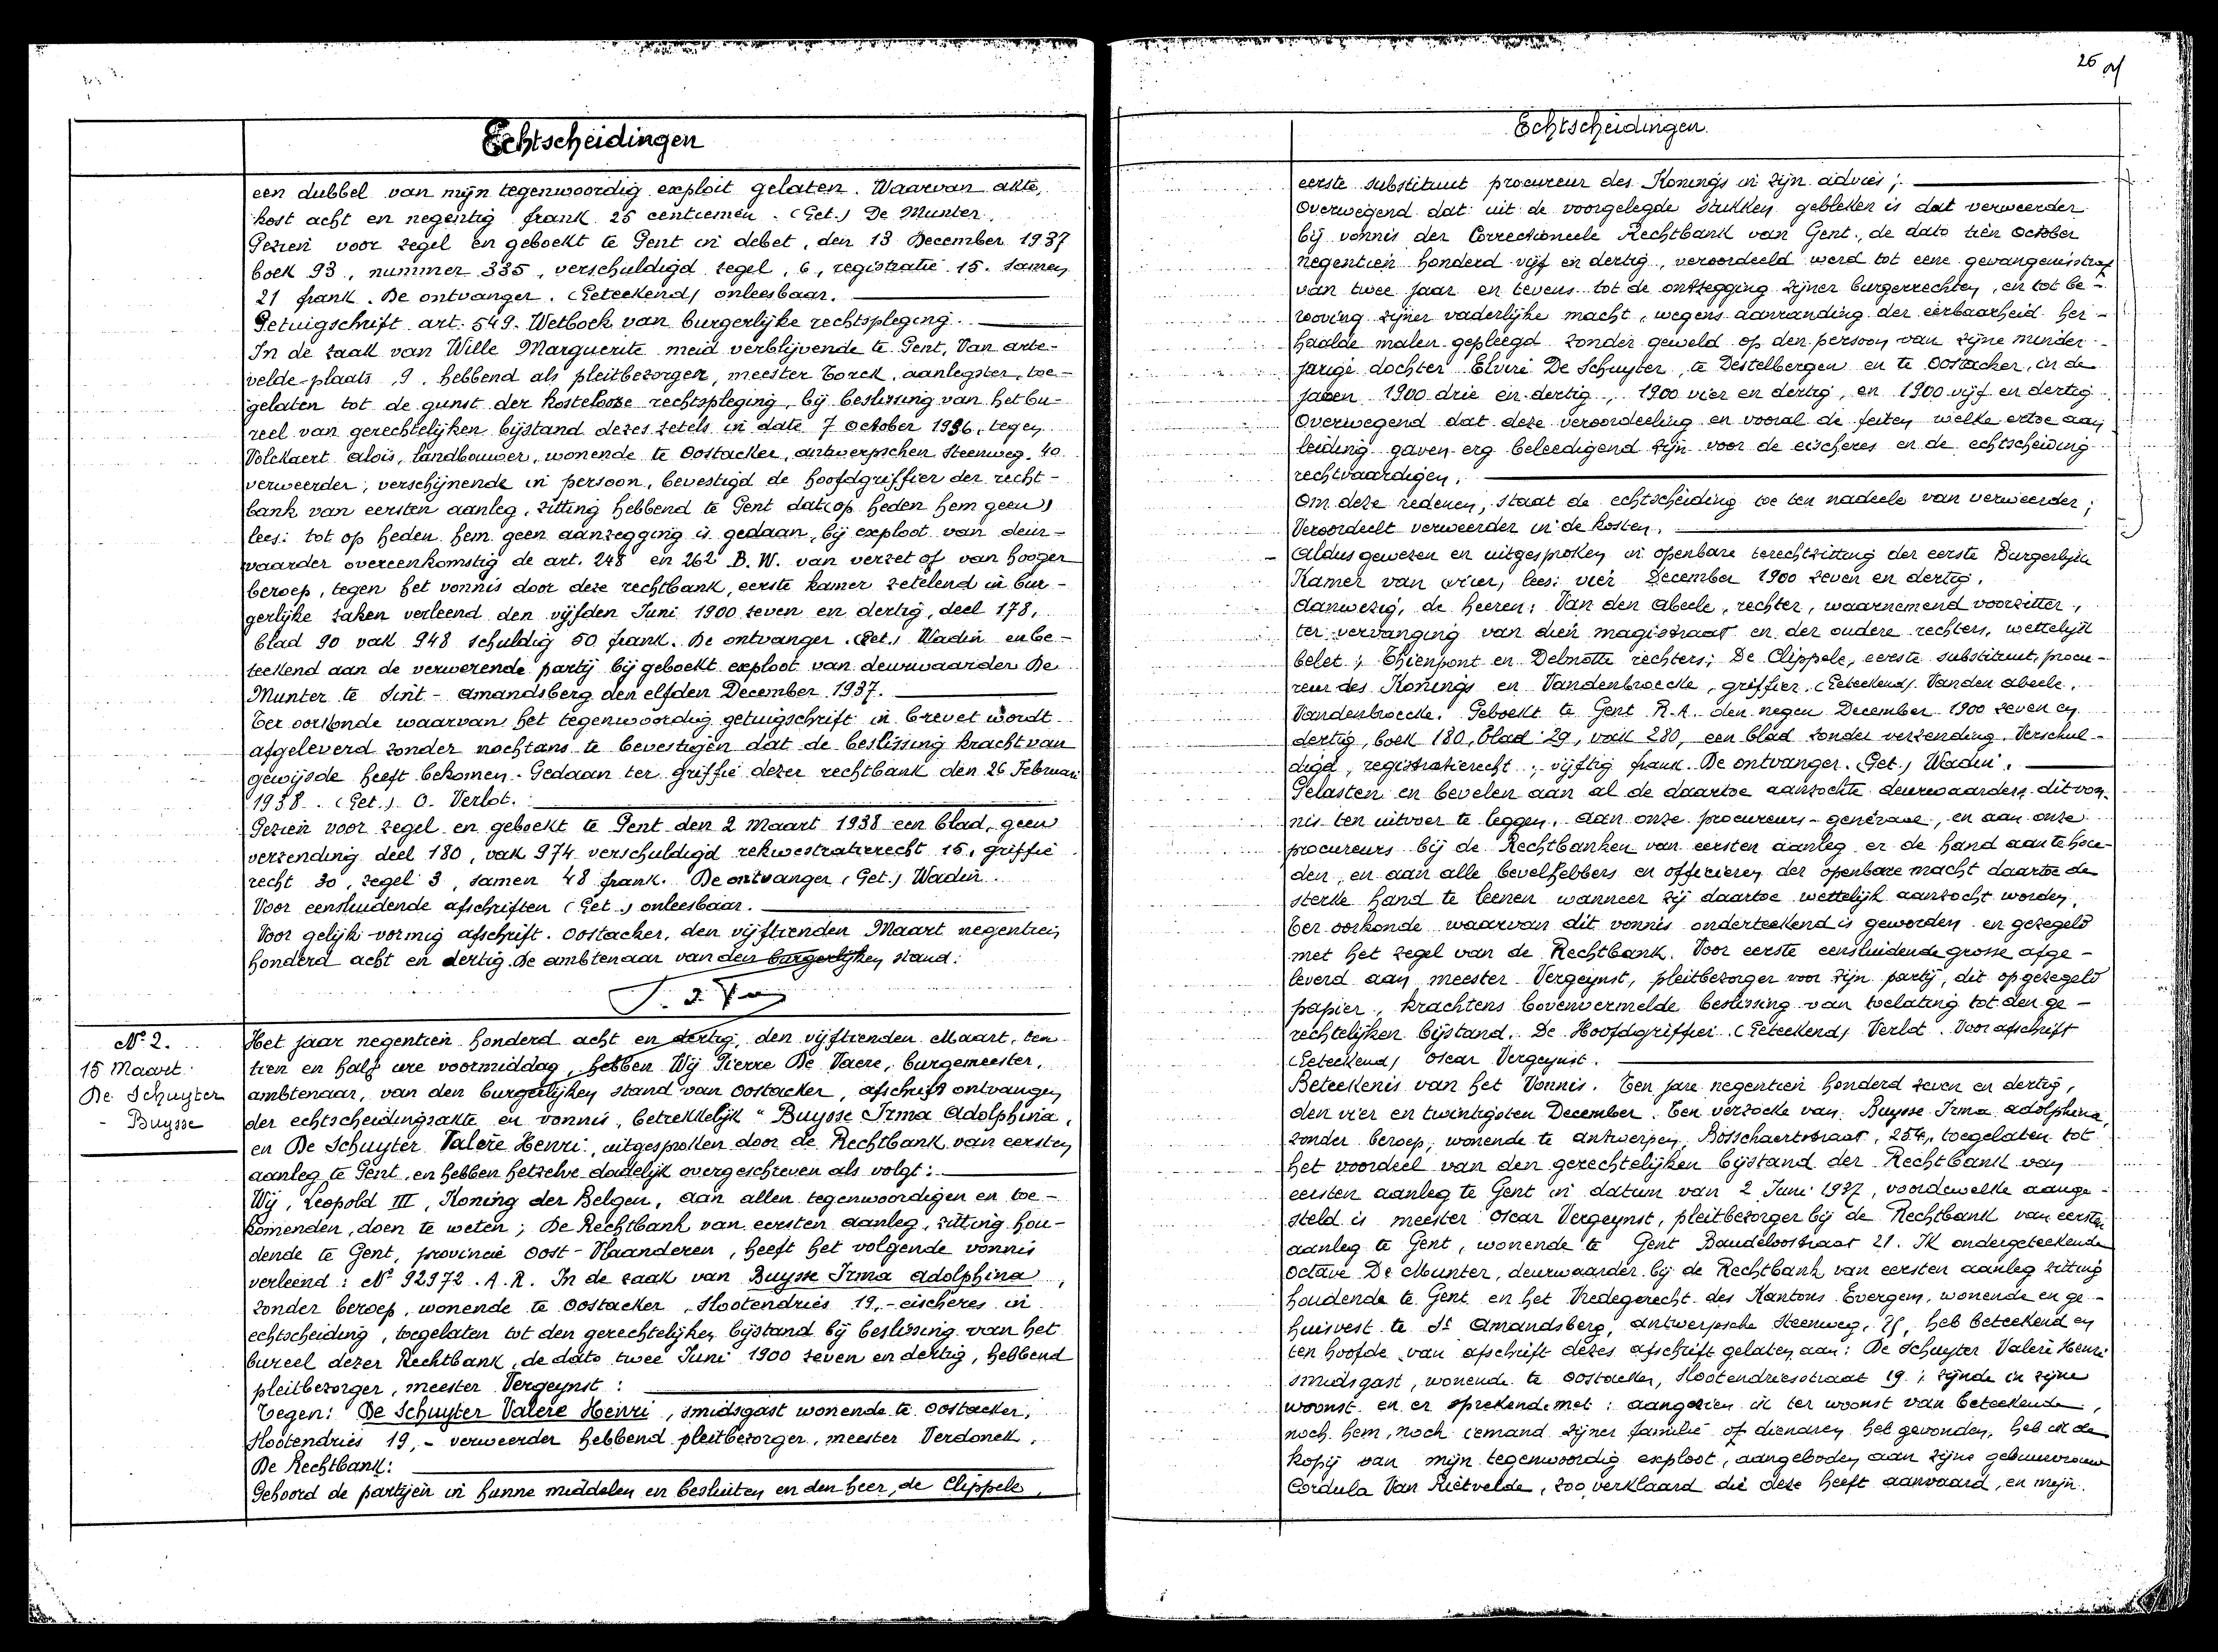 Echtscheidingen
een dubbel van mijn tegenwoordig exploit gelaten. Waarvan akte,
kost acht en negentig frank 25 centiemen. (Get.) De Munter.
Gezien voor zegel en geboekt te Gent in debet, den 13 December 1937
boek 93, nummer 335, verschuldigd zegel, 6, registratie 15. samen
21 frank. De ontvanger. (Geteekend) onleesbaar.
Getuigschrift art. 549. Wetboek van burgerlijke rechtspleging.
In de zaak van Wille Marguerite meid verblijvende te Gent, Van arte-
velde-plaats, 9, hebbend als pleitbezorger, meester Torck, aanlegster, toe-
gelaten tot de gunst der kostelooze rechtspleging, bij beslissing van het bu-
reel van gerechtelijken bijstand dezes zetels in date 7 October 1936, tegen
Volckaert Alois, landbouwer, wonende te Oostacker, antwerpschen Steenweg. 40
verweerder; verschijnende in persoon, bevestigd de hoofdgriffier der recht-
bank van eersten aanleg, zitting hebbend te Gent dat (op heden hem geen)
lees: tot op heden hem geen aanzegging is gedaan, bij exploot van deur-
waarder overeenkomstig de art. 248 en 262 B.W. van verzet of van hooger
beroep, tegen het vonnis door deze rechtbank, eerste kamer zetelend in bur-
gerlijke zaken verleend den vijfden Juni 1900 zeven en dertig, deel 178,
blad 90 vak 948 schuldig 50 frank. De ontvanger. (Get.) Wadin en be-
teekend aan de verwerende partij bij geboekt exploot van deurwaarder De
Munter te Sint-Amandsberg den elfden December 1937.
Ter oorkonde waarvan het tegenwoordig getuigschrift in brevet wordt
afgeleverd zonder nochtans te bevestigen dat de beslissing kracht van
gewijsde heeft bekomen. Gedaan ter griffie dezer rechtbank den 26 Februari
1938. (Get.) O. Verlot.
Gezien voor zegel en geboekt te Gent den 2 Maart 1938 een blad, geen
verzending deel 180, vak 974 verschuldigd rekwestratierecht 15, griffie
recht 30, zegel 3, samen 48 frank. De ontvanger (Get.) Wadin.
Voor eensluidende afschriften (Get.) onleesbaar.
Voor gelijk-vormig afschrift. Oostacker, den vijftienden Maart negentien
honderd acht en dertig. De ambtenaar van den burgerlijken stand:
N° 2.
15 Maart.
De Schuyter
- Buysse
Het jaar negentien honderd acht en dertig, den vijftienden Maart, ten
tien en half ure voormiddag, hebben Wij Pierre De Vaere, burgemeester,
ambtenaar, van den burgerlijken stand van Oostacker, afschrift ontvangen
der echtscheidingsakte en vonnis, betrekkelijk " Buysse Irma Adolphina,
en De Schuyter Valère Henri, uitgesproken door de Rechtbank van eersten
aanleg te Gent, en hebben hetzelve dadelijk overgeschreven als volgt:
Wij, Leopold III, Koning der Belgen, aan allen tegenwoordigen en toe-
komenden, doen te weten; De Rechtbank van eersten aanleg, zitting hou-
dende te Gent, provincie Oost-Vlaanderen, heeft het volgende vonnis
verleend: N° 92972. A.R. In de zaak van Buysse Irma Adolphina,
zonder beroep, wonende te Oostacker, Slootendries 19,- eischeres in
echtscheiding, toegelaten tot den gerechtelijken bijstand bij beslissing van het
bureel dezer Rechtbank, de dato twee Juni 1900 zeven en dertig, hebbend
pleitbezorger, meester Vergeynst:
Tegen: De Schuyter Valere Henri, smidsgast wonende te Oostacker,
Slootendries 19,- verweerder hebbend pleitbezorger, meester Verdonck.
De Rechtbank:
Gehoord de partijen in hunne middelen en besluiten en den heer, de Clippele,
26
Echtscheidingen.
eerste substituut procureur des Konings in zijn advies;
Overwegend dat uit de voorgelegde stukken gebleken is dat verweerder
bij vonnis der Correctioneele Rechtbank van Gent, de dato tien October
negentien honderd vijf en dertig, veroordeeld werd tot eene gevangenisstraf
van twee jaar en tevens tot de ontzegging zijner burgerrechten, en tot be-
rooving zijner vaderlijke macht, wegens aanranding der eerbaarheid her-
haalde malen gepleegd zonder geweld op den persoon van zijne minder-
jarige dochter Elvire De Schuyter, te Destelbergen en te Oostacker, in de
jaren 1900 drie en dertig, 1900 vier en dertig, en 1900 vijf en dertig
Overwegend dat deze veroordeeling en vooral de feiten welke ertoe aan
leiding gaven erg beleedigend zijn voor de eischeres en de echtscheiding
rechtvaardigen.
Om deze redenen, staat de echtscheiding toe ten nadeele van verweerder;
Veroordeelt verweerder in de kosten.
Aldus gewezen en uitgesproken in openbare terechtzitting der eerste Burgerlijke
Kamer van (vier, lees: vier December 1900 zeven en dertig.
Aanwezig, de heeren: Van den Abeele, rechter, waarnemend voorzitter,
ter vervanging van dien magistraat en der oudere rechters, wettelijk
belet; Thienpont en Delmotte rechters; De Clippele, eerste substituut, procu-
reur des Konings en Vandenbroecke, griffier. (Geteekend) Vanden Abeele.
Vandenbroecke. Geboekt te Gent R.A. den negen December 1900 zeven en
dertig, boek 180, blad 29, vak 280, een blad zonder verzending. Verschul-
digd, registratierecht: vijftig frank. De ontvanger. (Get.) Wadin.
Gelasten en bevelen aan al de daartoe aanzochte deurwaarders dit von-
nis ten uitvoer te leggen. Aan onze procureurs-generaal, en aan onze
procureurs bij de Rechtbanken van eersten aanleg er de hand aan te hou-
den, en aan alle bevelhebbers en officieren der openbare macht daartoe de
sterke hand te leenen wanneer zij daartoe wettelijk aanzocht worden.
Ter oorkonde waarvan dit vonnis onderteekend is geworden en gezegeld
met het zegel van de Rechtbank. Voor eerste eensluidende grosse afge-
leverd aan meester Vergeynst, pleitbezorger voor zijn partij, dit op gezegeld
papier, krachtens bovenvermelde beslissing van toelating tot den ge-
rechtelijken bijstand. De Hoofdgriffier. (Geteekend) Verlot. Voor afschrift
(Geteekend) Oscar Vergeynst.
Beteekenis van het Vonnis. Ten jare negentien honderd zeven en dertig,
den vier en twintigsten December. Ten verzoeke van Buysse Irma Adolphina,
zonder beroep, wonende te Antwerpen, Bosschaertstraat, 254, toegelaten tot
het voordeel van den gerechtelijken bijstand der Rechtbank van
eersten aanleg te Gent in datum van 2 Juni 1937, voordewelke aange-
steld is meester Oscar Vergeynst, pleitbezorger bij de Rechtbank van eersten
aanleg te Gent, wonende te Gent Baudeloostraat 21. Ik ondergeteekende
Octave De Munter, deurwaarder bij de Rechtbank van eersten aanleg zitting
houdende te Gent en het Vredegerecht des Kantons Evergem, wonende en ge-
huisvest te St Amandsberg, Antwerpsche Steenweg, heb beteekend en
ten hoofde van afschrift dezes afschrift gelaten aan: De Schuyter Valere Henri
smidsgast, wonende te Oostacker, Slootendriesstraat 19; zijnde in zijne
woonst en er sprekende met: aangezien ik ter woonst van beteekende,
noch hem, noch iemand zijner familie of dienaren heb gevonden, heb ik de
kopij van mijn tegenwoordig exploot, aangeboden aan zijne gebuurvrouw
Cordula Van Rietvelde, zoo verklaard die deze heeft aanvaard, en mijn